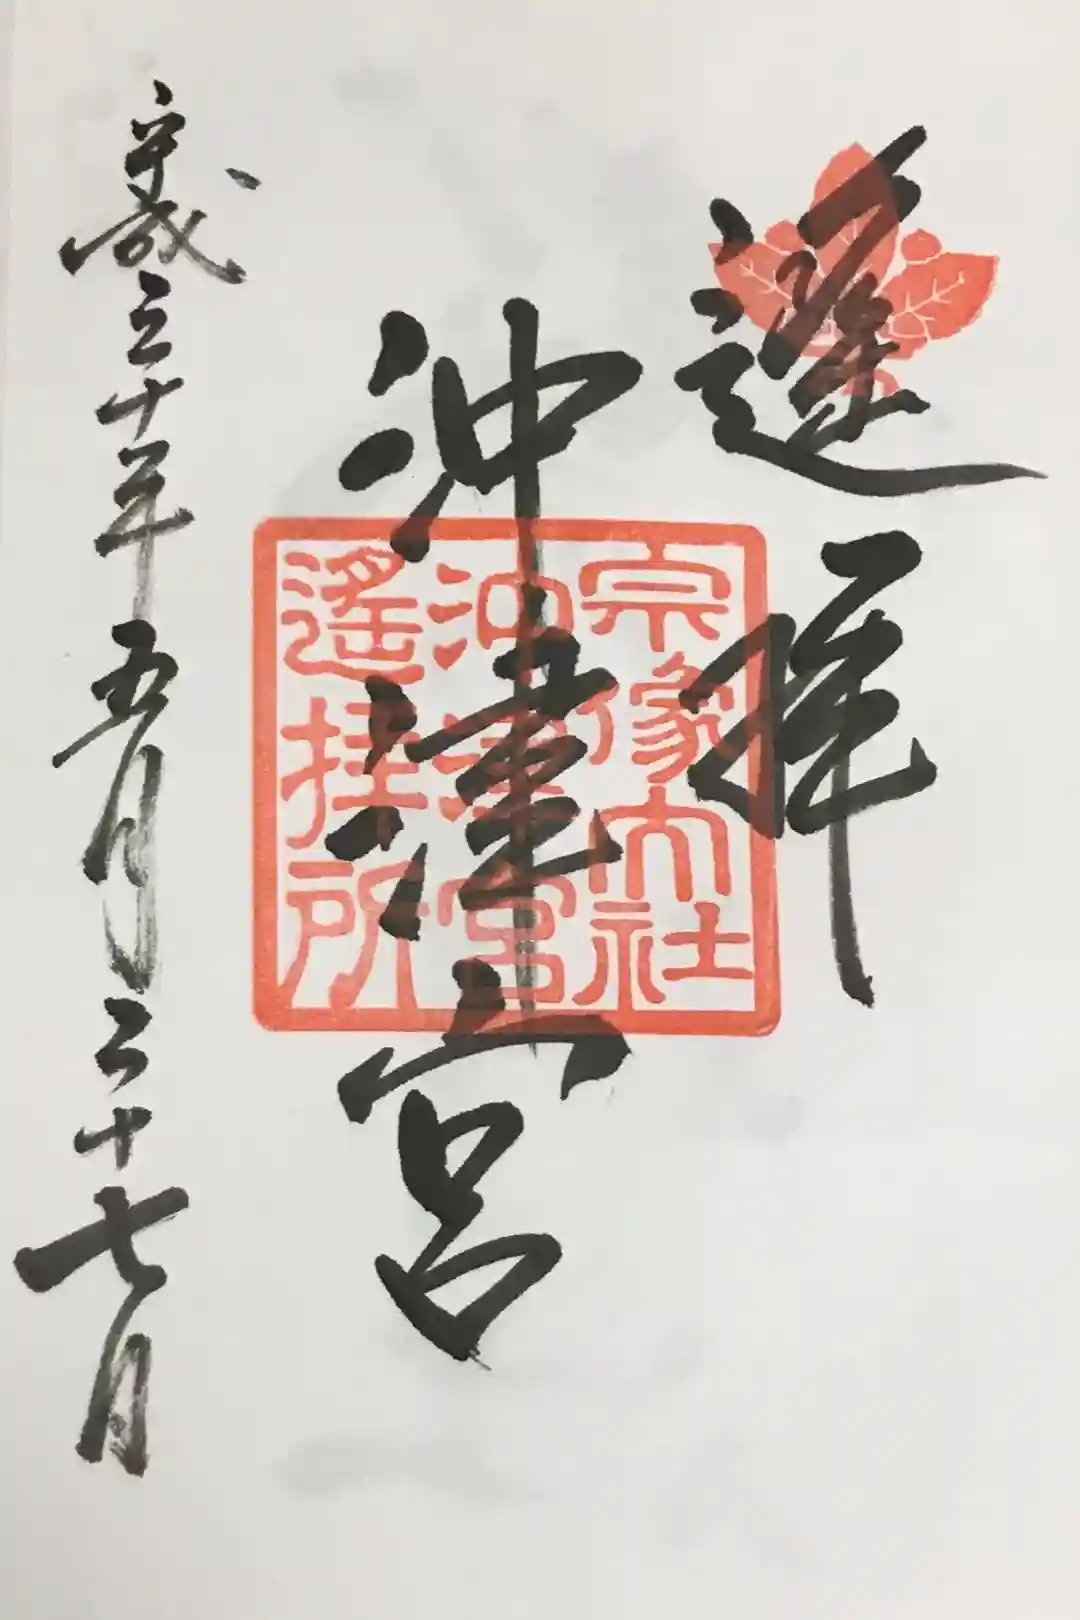 遙拝
沖津宮
平成三十年五月二十七日
宗像大社
沖津宮
遙拝所